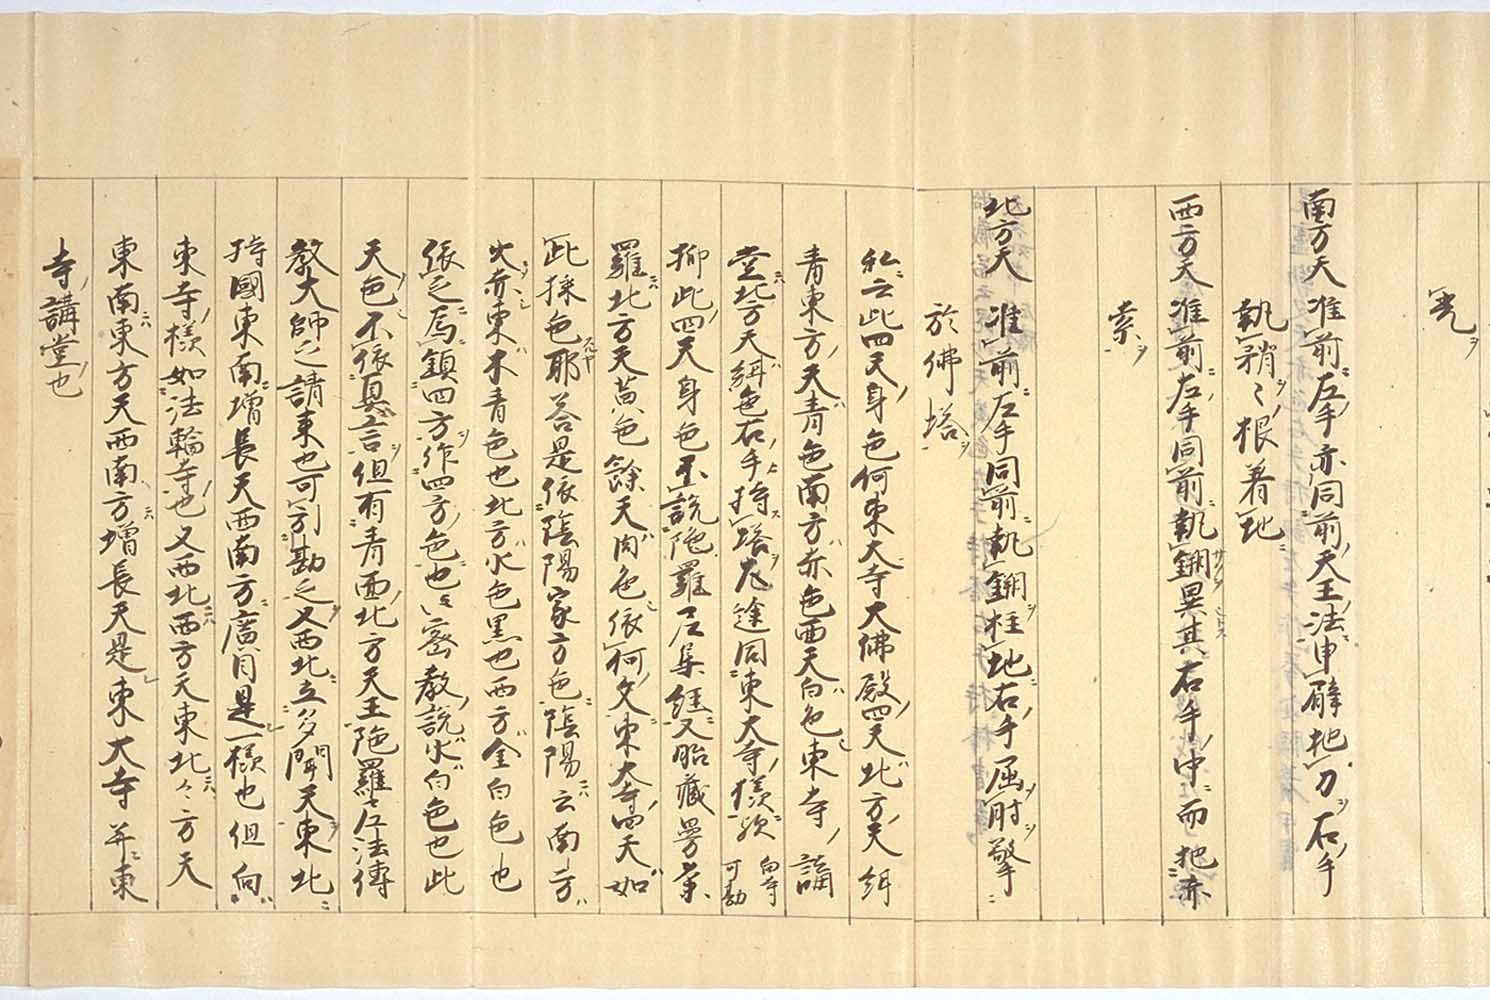 寃ヲ
南方天准前左手亦同前天王法申臂把刀右手
執矟ヽ根着地
西方天准前左手同前執鉤異其右手中而把赤
索ヲ
北方天准前左手同前執鉤柱地右手屈肘擎
於佛塔ヲ
私云此四天身色何東大寺大佛殿四天北方天紺
青東方天青色南方赤色西天白色東寺講
堂北方天紺色右手持塔左途同東大寺様歟 自寺可勘
抑此四天身色不説陀羅尼集経又胎蔵曼荼
羅北方天黄色餘天肉色依何文東大寺四天如
此採色耶答是依陰陽家方色陰陽云南方
火赤東木青色也北方水色黒也西方金白色也
依之為鎮四方作四方色也密教説水白色也此
天色不依真言但有青西北方天王陀羅尼法傳
教大師之請来也可引勘之又西北立多聞天東北
持國東南増長天西南方廣目是一様也但向
東寺様如法輪寺也又西北西方天東北々方天
東南東方天西南方増長天是東大寺并東
寺講堂也